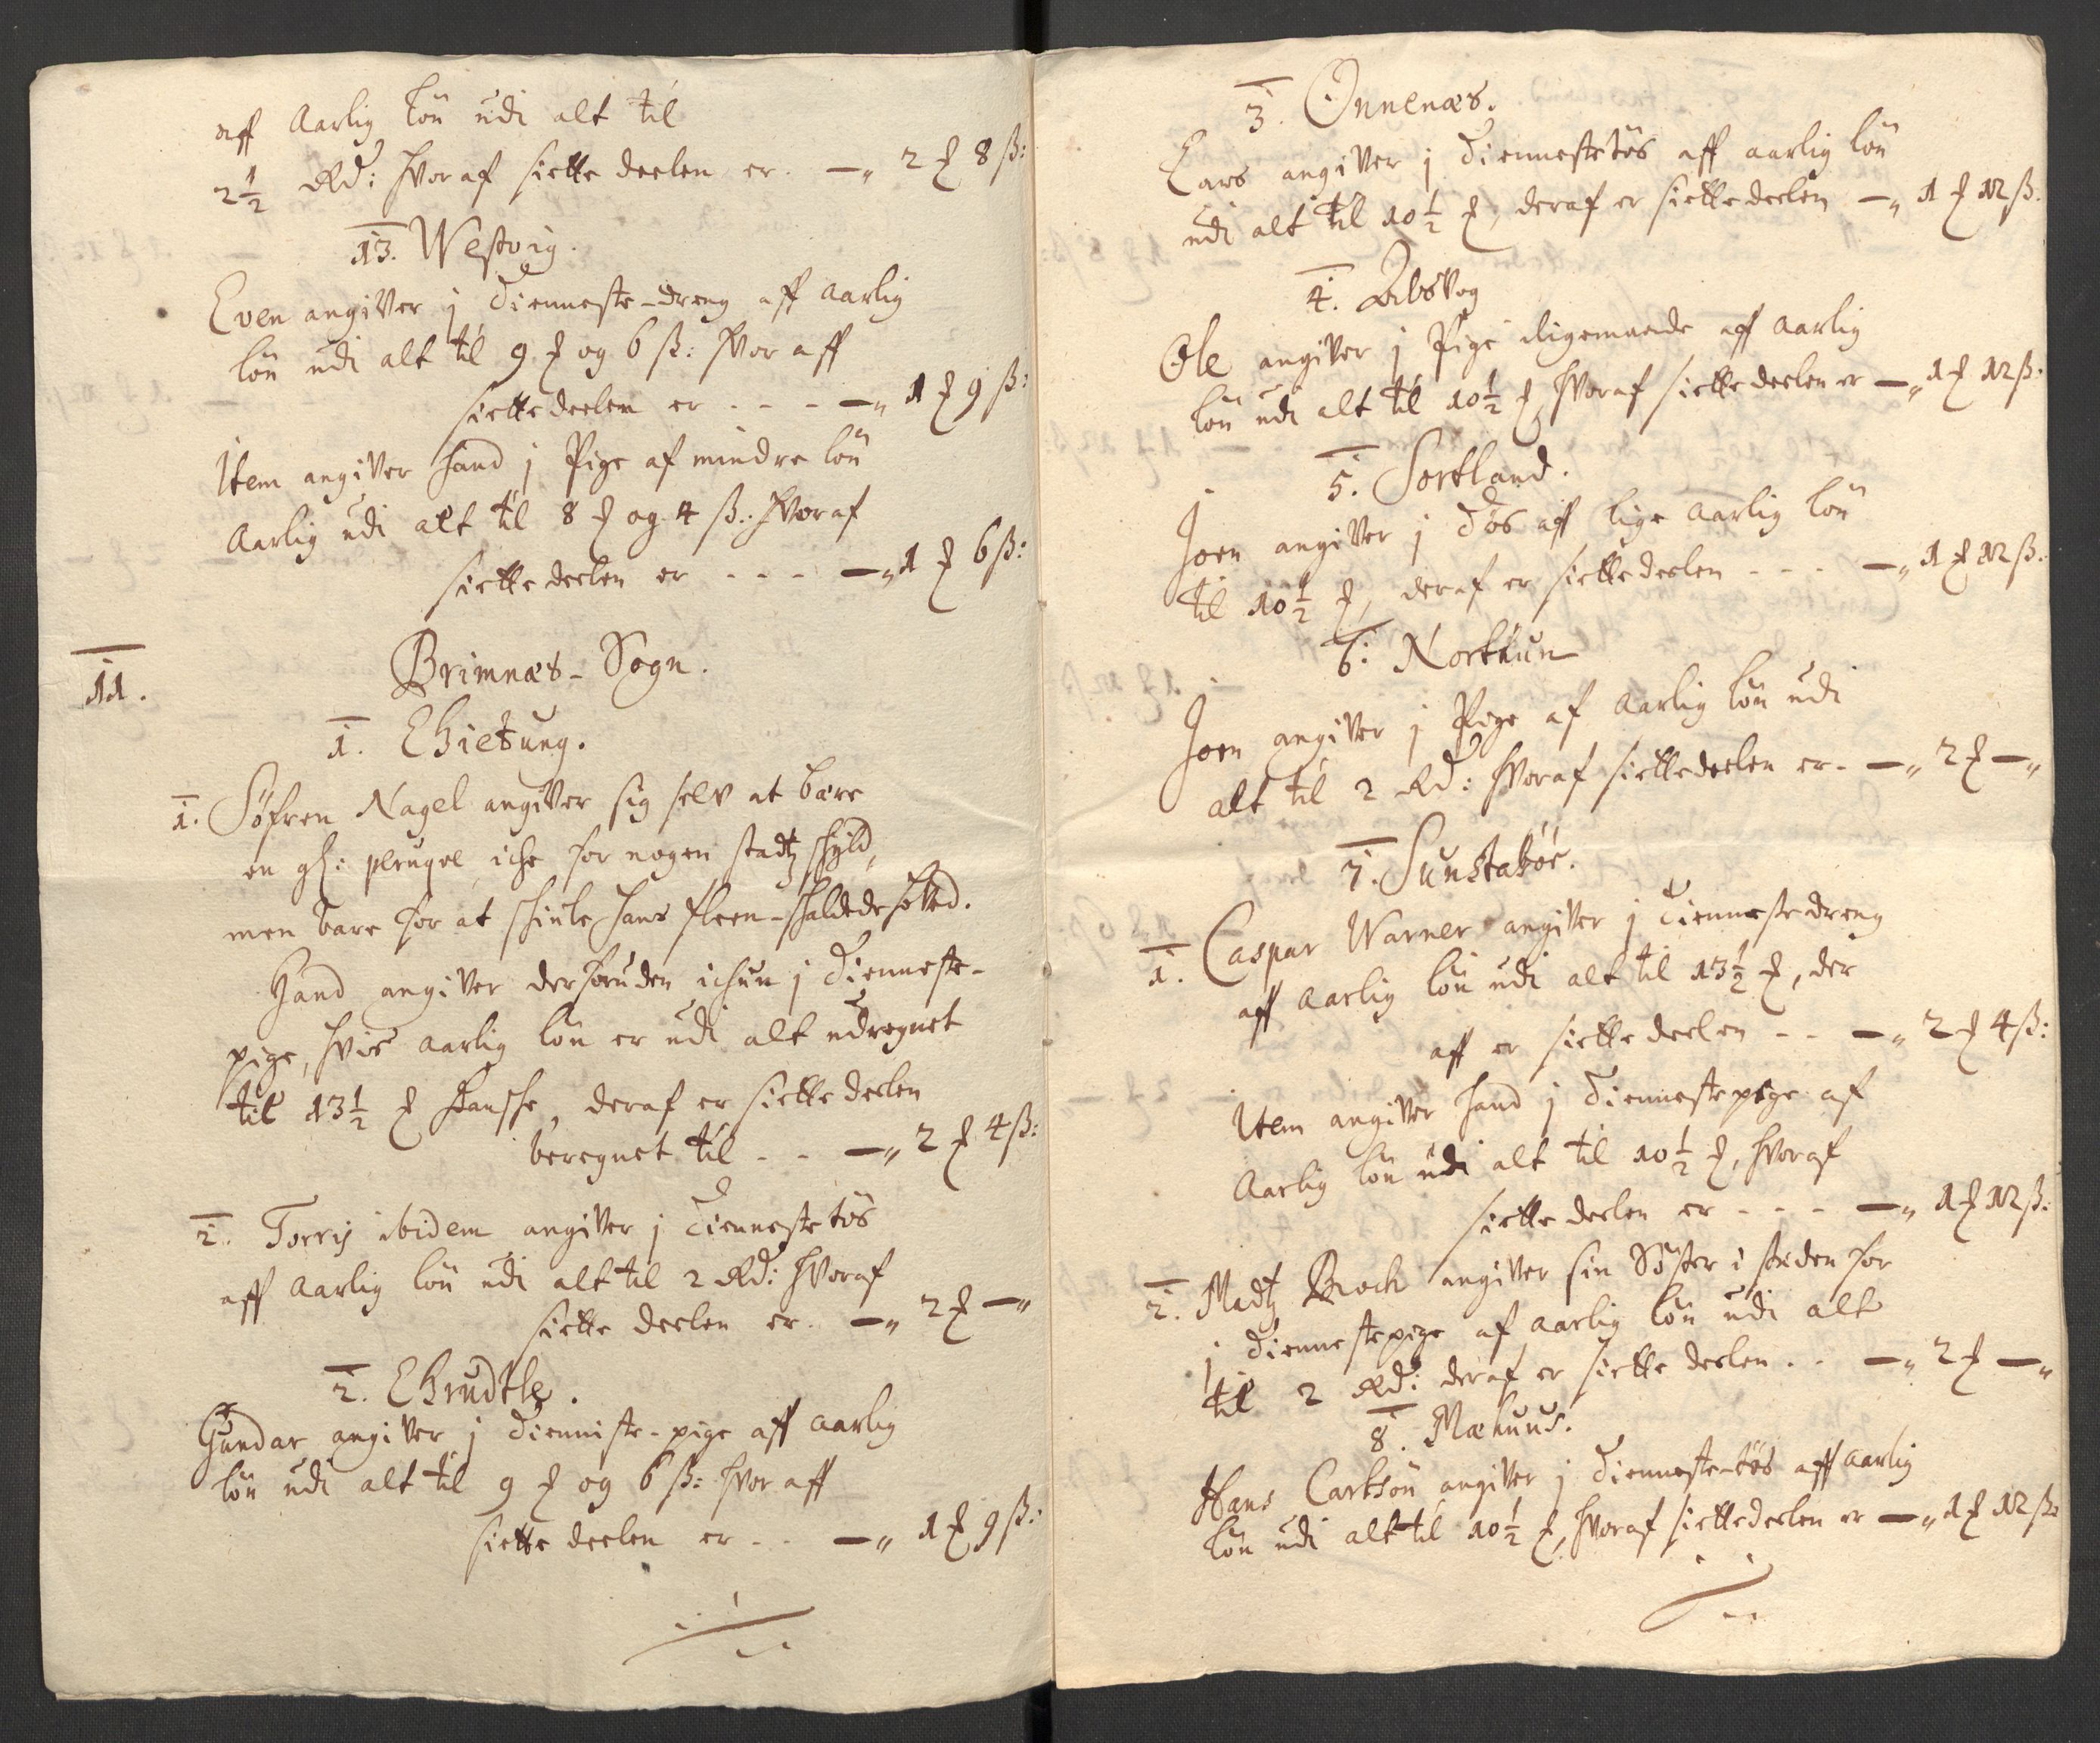 aff aarlig lön udi alt til
2½ Rd: hvoraf siette deelen er. —„ 2 ₰ 8 ß:
13. Westvig.
Even angiver j Dienneste-dreng aff aarlig
lön udi alt til 9 ₰ og 6 ß: hvoraff
siette deelen er - - - —„ 1 ₰ 9 ß:
Item angiver hand j Pige af mindre lön
aarlig udi alt til 8 ₰ og 4 ß: hvoraf
siette deelen er - - - —„ 1 ₰ 6 ß:
11.
Brimnæs-Sogn.
1.
1. Söfren Nagel angiver sig selv at bære
en gl: peruqve, iche for nogen stadtz skyld,
men bare for at skiule hans skaldede hoved.
Hand angiver desforuden ichun j Dienneste-
pige, hvis aarlig lön er udi alt udregnet
til 13½ ₰ danske, deraf er siette deelen
beregnet til - - —„ 2 ₰ 4 ß:
2. Torris ibidem angiver j Dienneste tös
aff aarlig lön udi alt til 2 Rd: hvoraf
siette deelen er. —„ 2 ₰ —„
2.
Gundar angiver j Dienniste-pige aff aarlig
lön udi alt til 9 ₰ og 6 ß: hvoraff
siette deelen er - - —„ 1 ₰ 9 ß:
3. Önnenæs.
Lars angiver j Diennestetös aff aarlig lön
udi alt til 10½ ₰, deraf er siette deelen —„ 1 ₰ 12 ß.
4.
Ole angiver j Pige ligemaade aff aarlig
lön udi alt til 10½ ₰, hvoraf siette deelen er —„ 1 ₰ 12 ß.
5. Sortland.
Joen angiver j Tös aff lige aarlig lön
til 10½ ₰, deraf er siette deelen - - - —„ 1 ₰ 12 ß.
6. Nortuun
Joen angiver j Pige af aarlig lön udi
alt til 2 Rd: hvoraf siette deelen er - —„ 2 ₰ —„
7. Sunstaböe.
1. Caspar Warner angiver j Diennestedreng
aff aarlig lön udi alt til 13½ ₰, der
aff er siette deelen - - —„ 2 ₰ 4 ß:
Item angiver hand j Diennestepige af
aarlig lön udi alt til 10½ ₰, hvoraf
siette deelen er - - - —„ 1 ₰ 12 ß:
2. Madtz Broch angiver sin Söster i steden for
j Diennestepige af aarlig lön udi alt
til 2 Rd: deraf er siette deelen - - —„ 2 ₰ —„
8.
Hans Carlsön angiver j Dienneste-tös aff aarlig
lön udi alt til 10½ ₰, hvoraf siette deelen er —„ 1 ₰ 12 ß: